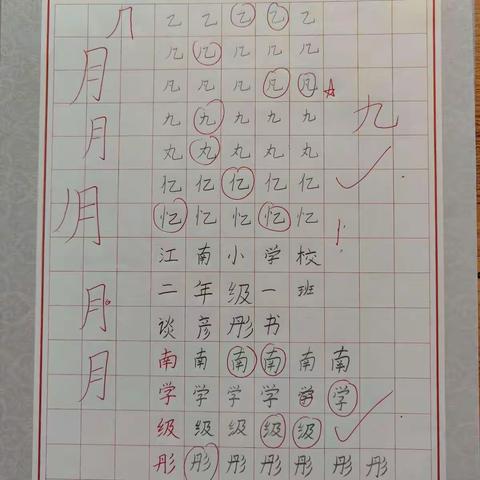 乙 乙 乙 乙 乙
月 几 几 几 几 几
凡 凡 凡 凡 凡
九 九 九 九 九 九
月 丸 丸 丸 丸 丸
亿 亿 亿 亿 亿
月 忆 忆 忆 忆 忆
江 南 小 学 校
月 二 年 级 一 班
谈 彦 彤 书
月 南 南 南 南 南 南
学 学 学 学 学 学
级 级 级 级 级
彤 彤 彤 彤 彤 彤 彤